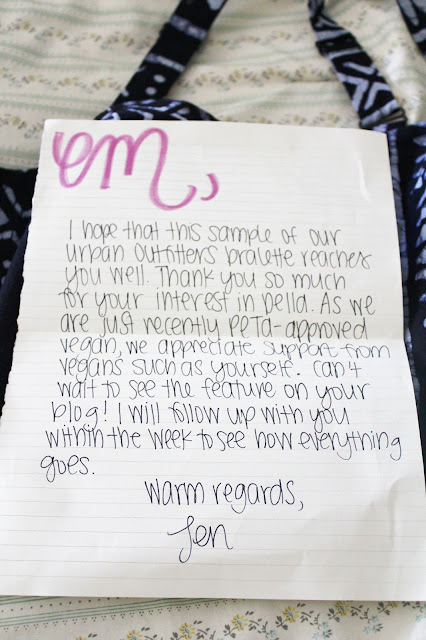 em,
I hope that this sample of our
urban outfitters bralette reaches
you well. Thank you so much
for your interest in pella. As we
are just recently PETA-approved
vegan, we appreciate support from
vegans such as yourself. Can't
wait to see the feature on your
blog! I will follow up with you
within the week to see how everything
goes.
warm regards,
Jen